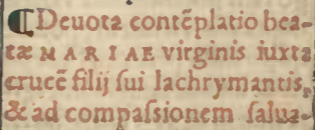 ¶ Deuota contẽplatio bea-
tæ MARIAE virginis iuxta
crucẽ filij ſui lachrymantis,
& ad compaſsionem ſalua-